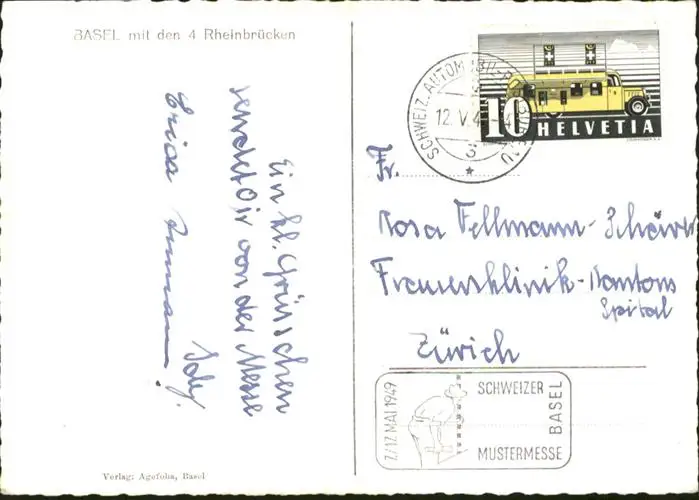 BASEL mit den 4 Rheinbrücken
Ein kl. Grüsschen
sendet Dir von der Messe
Erica
Verlag: Agefoba, Basel
SCHWEIZ. AUTOM
12. V. 4
3
10 HELVETIA
Fr.
Rosa Fellmann-
Frauenklinik-Kantons
Spital
Zürich
7/17 MAI 1949
SCHWEIZER
MUSTERMESSE
BASEL